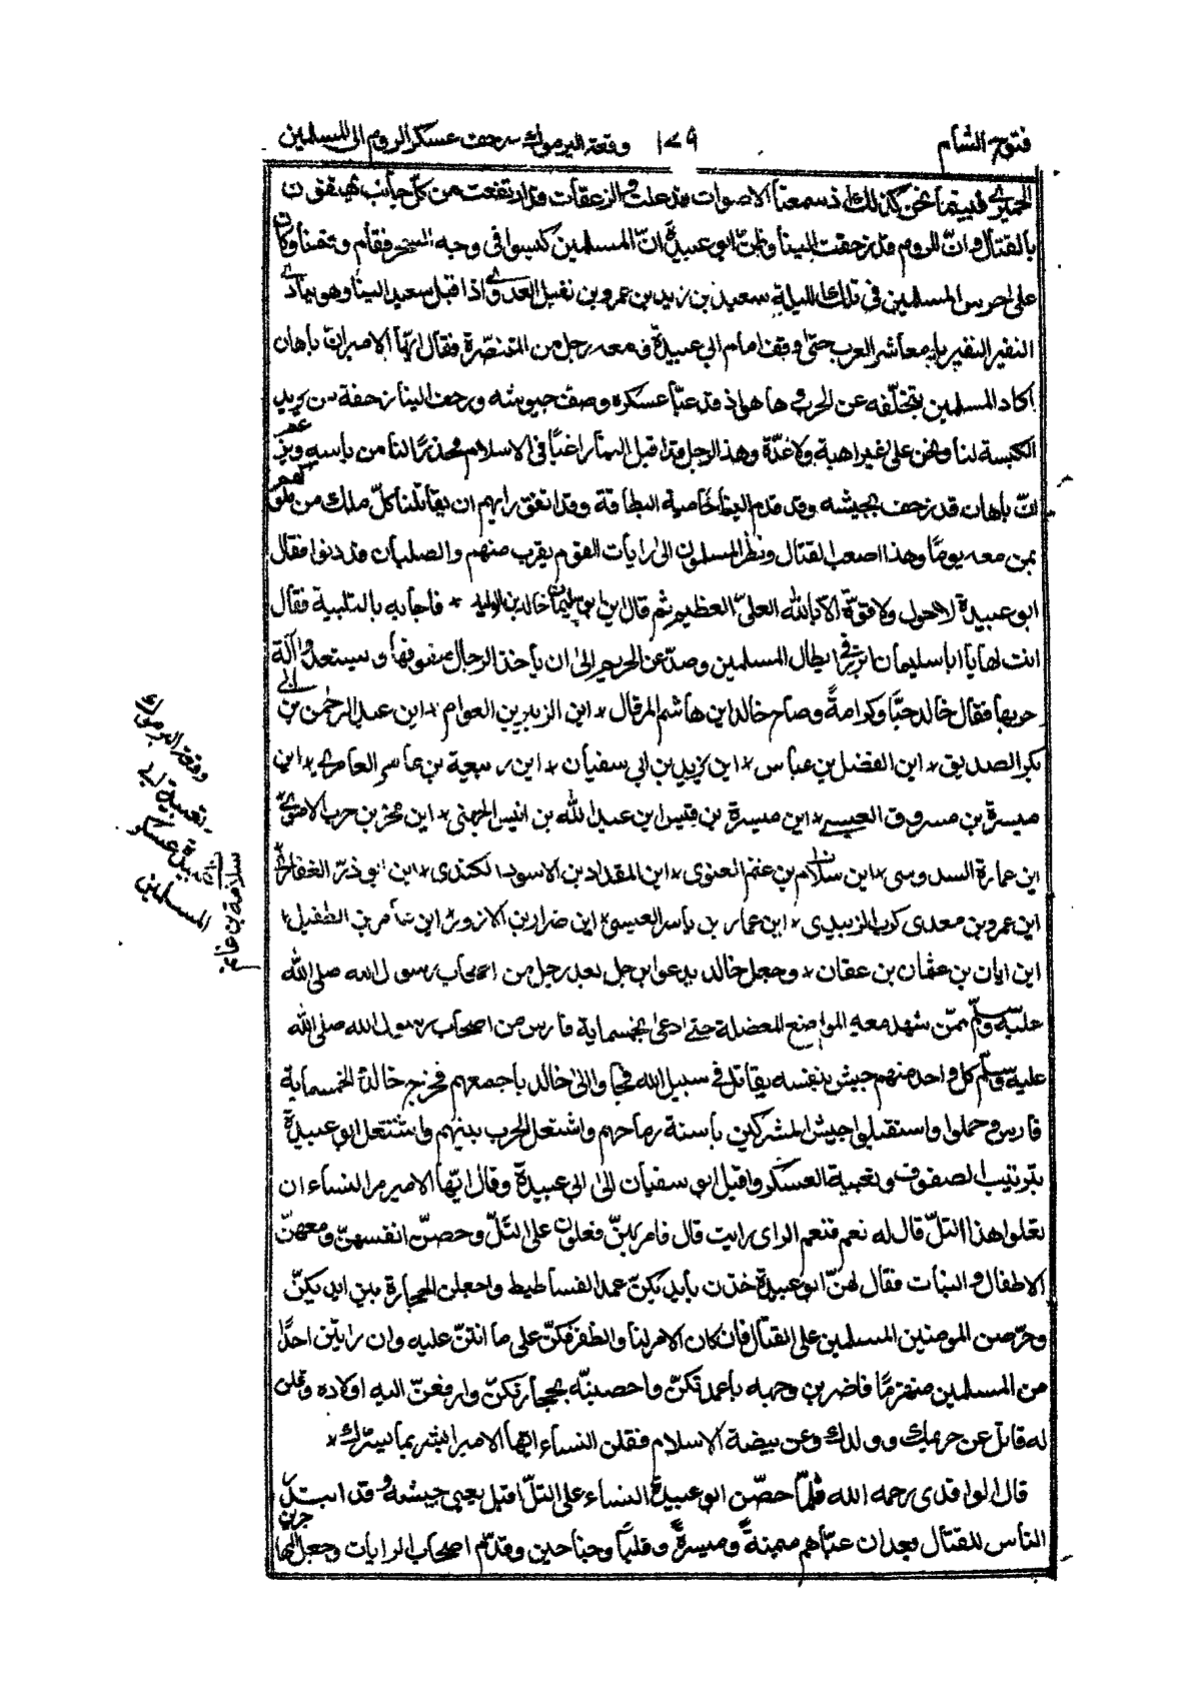 فتوح الشام
١٧٩
وقعة اليرموك زحف عسكر الروم الى المسلمين
الحميري فبينما نحن كذلك اذ سمعنا الاصوات قد علت والزعقات قد ارتفعت من كل جانب يهتفون
بالقتال وانّ الروم قد زحفت الينا وظنّ ابو عبيدة انّ المسلمين كبسوا فى وجه السحر فقام وتفنا وكان
على حرس المسلمين فى تلك الليلة سعيد بن زيد بن عمرو بن نفيل العدوي اذا قبل سعيد الينا وهو ينادي
النفير النفير يا معاشر العرب حتى وقف امام ابي عبيدة ومعه رجل من المتنصّرة فقال ايّها الامير انّ باهان
اكاد المسلمين بتخلّفه عن الحرب وها هو اذ قد عبّا عسكره وصفّ جيوشه وزحف الينا زحفة من يريد
الكبسة لنا ونحن على غير اهبة ولا عُدّة وهذا الرجل قد اقبل الينا راغبًا فى الاسلام محذرًا لنا من باسه ويزعم
انّ باهان قد زحف بجيشه وقد قدم الينا خاصية البطارقة وقد اتفق رايهم ان يقاتلنا كلّ ملك من ملوكهم
بمن معه يومًا وهذا اصعب القتال ونظر المسلمون الى رايات القوم بقرب منهم والصلبان قد دنوا فقال
ابو عبيدة لا حول ولا قوّة الّا بالله العلىّ العظيم ثم قال اين ابو سليمان خالد بن الوليد * فاجابه بالتلبية فقال
انت لها يا ابا سليمان ابرز فى ابطال المسلمين وصدّ عن الحريم الى ان ياخذ الرجال صفوفها ويستعدوا آلة
حربها فقال خالد حبًّا وكرامةً وصاح خالد اين هاشم المرقال * اين الزبير بن العوام * اين عبد الرحمٰن بن ابي
بكر الصديق * اين الفضل بن عباس * اين يزيد بن ابي سفيان * اين ربيعة بن عامر العامري * اين
ميسرة بن مسروق العبسي * اين ميسرة بن قيس اين عبد الله بن انيس الجهني * اين صخر بن حرب الاموي *
اين عمارة السدوسي * اين سلام بن غنم الغنوي * اين المقداد بن الاسود الكندي * اين ابو ذرّ الغفاري
اين عمرو بن معدي كرب الزبيدي * اين عمار بن ياسر العبسي * اين ضرار بن الازور * اين عامر بن الطفيل *
اين ابان بن عثمان بن عفان * وجعل خالد يدعوا برجل بعد رجل من اصحاب رسول الله صلى الله
عليه وسلّم ممّن شهد معه المواضع المعضلة حتى ادعى بخمسماية فارس من اصحاب رسول الله صلى الله
عليه وسلّم كل واحد منهم جيش بنفسه يقاتل فى سبيل الله فجاوا الى خالد باجمعهم فخرج خالد فى الخمسماية
فارس وحملوا واستقبلوا جيش المشركين باسنة رماحهم واشتعل الحرب بينهم واشتغل ابو عبيدة
بترتيب الصفوف وتعبية العسكر واقبل ابو سفيان الى ابي عبيدة وقال ايّها الامير مر النساء ان
يعلوا هذا التلّ قال له نعم فنعم الراى رايت قال فامر بهنّ فعلون على التلّ وحصنّ انفسهنّ ومعهنّ
الاطفال والبنات فقال لهنّ ابو عبيدة خذن بايديكنّ عمد الفساطيط واجعلن الحجارة بين ايديكنّ
وحرّضن المومنين المسلمين على القتال فان كان الامر لنا والظفر فكنّ على ما انتنّ عليه وان رايتن احدًا
من المسلمين منهزمًا فاضربن وجهه باعمدتكنّ واحصبنه بحجارتكنّ وارفعن اليه اولاده وقلن
له قاتل عن حرمك وولدك وعن بيضة الاسلام فقلن النساء ايّها الامير ابشر بما يسرّك *
قال الواقدى رحمه الله فلمّا حصّن ابو عبيدة النساء على التلّ اقبل يعبى جيشه وقد ابتدر
الناس للقتال بعد ان عبّاهم ميمنةً وميسرةً وقلبًا وجناحين وقدّم اصحاب الرايات وجعل
وقعة اليرموك
تعبية
عسكر
المسلمين
سلامة بن